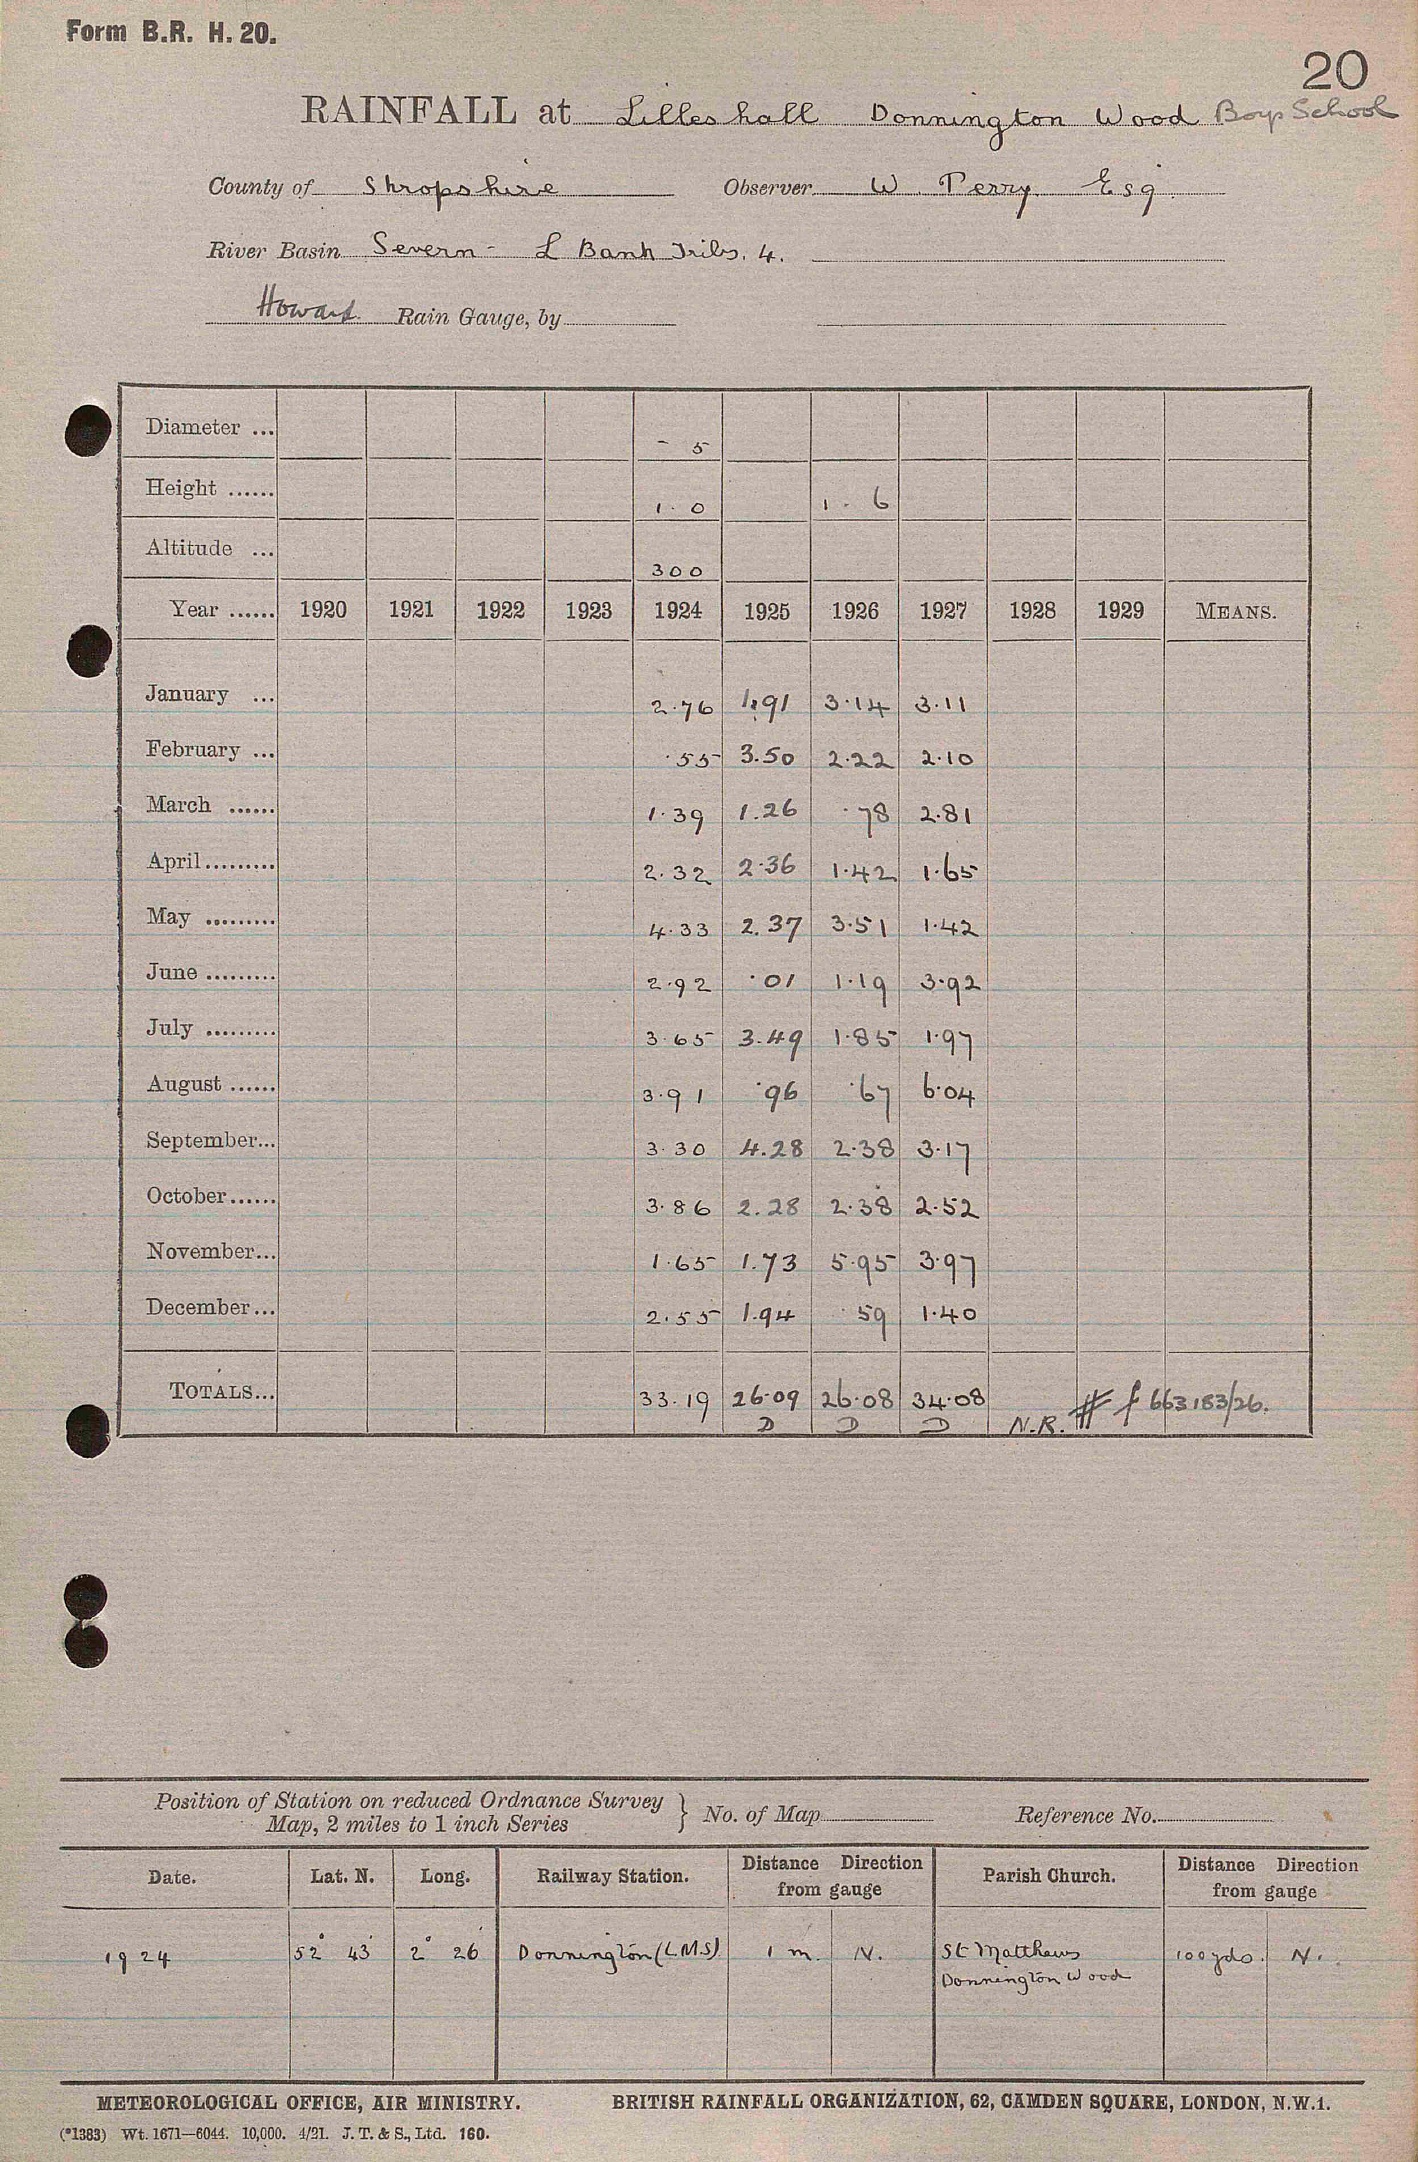 Form B.R. H. 20.
20
RAINFALL at Lilleshall Donnington Wood Boys School
County of Shropshire Observer W. Perry Esq.
River Basin Severn - L Bank Tribs. 4.
Howard Rain Gauge, by
Diameter ... - 5
Height ...... 1. 0 1. 6
Altitude ... 300
Year ...... 1920 1921 1922 1923 1924 1925 1926 1927 1928 1929 MEANS.
January ... 2.76 1.91 3.14 3.11
February ... .55 3.50 2.22 2.10
March ...... 1.39 1.26 .78 2.81
April ......... 2.32 2.36 1.42 1.65
May ......... 4.33 2.37 3.51 1.42
June ......... 2.92 .01 1.19 3.92
July ......... 3.65 3.49 1.85 1.97
August ...... 3.91 .96 .67 6.04
September... 3.30 4.28 2.38 3.17
October ...... 3.86 2.28 2.38 2.52
November... 1.65 1.73 5.95 3.97
December... 2.55 1.94 .59 1.40
TOTALS... 33.19 26.09 26.08 34.08 # f 663183/26.
D D D N.R.
Position of Station on reduced Ordnance Survey
Map, 2 miles to 1 inch Series } No. of Map Reference No.
Date. Lat. N. Long. Railway Station. Distance Direction from gauge Parish Church. Distance Direction from gauge
1924 52° 43' 2° 26' Donnington (LMS) 1 m. N. St Matthews 100 yds. N.
Donnington Wood
METEOROLOGICAL OFFICE, AIR MINISTRY. BRITISH RAINFALL ORGANIZATION, 62, CAMDEN SQUARE, LONDON, N.W.1.
(*1383) Wt. 1671—6044. 10,000. 4/21. J. T. & S., Ltd. 160.